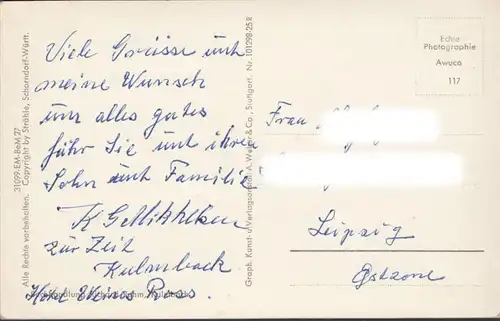 Viele Grüsse und
meine Wunsch
um alles gutes
führ Sie und ihren
Sohn und Familie
K
zur Zeit
Kulmbach
31099-EM-B6M 27
Alle Rechte vorbehalten. Copyright by Strähle, Schorndorf-Württ.
Graph. Kunst- u. Verlagsanstalt A. Weber & Co., Stuttgart, Nr. 101298-25 R
Echte
Photographie
Awuco
117
Frau
Leipzig
Ostzone